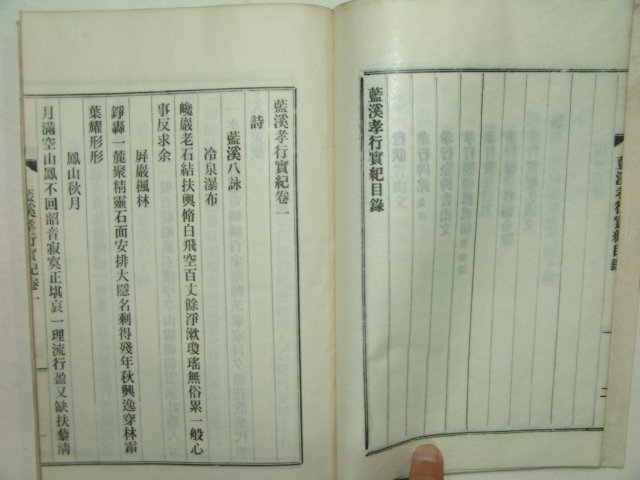 藍溪孝行實紀目錄
藍溪孝行實紀目錄
二
藍溪孝行實紀卷一
詩
藍溪八詠
冷泉瀑布
巉巖老石結扶輿脩白飛空百丈餘淨漱瓊瑤無俗累一般心
事反求余
屛巖楓林
錚轟一簏聚精靈石面安排大隱名剩得殘年秋興逸穿林霜
葉耀形形
鳳山秋月
月滿空山鳳不回韶音寂寞正堪哀一理流行盈又缺扶藜淸
藍溪孝行實紀卷一